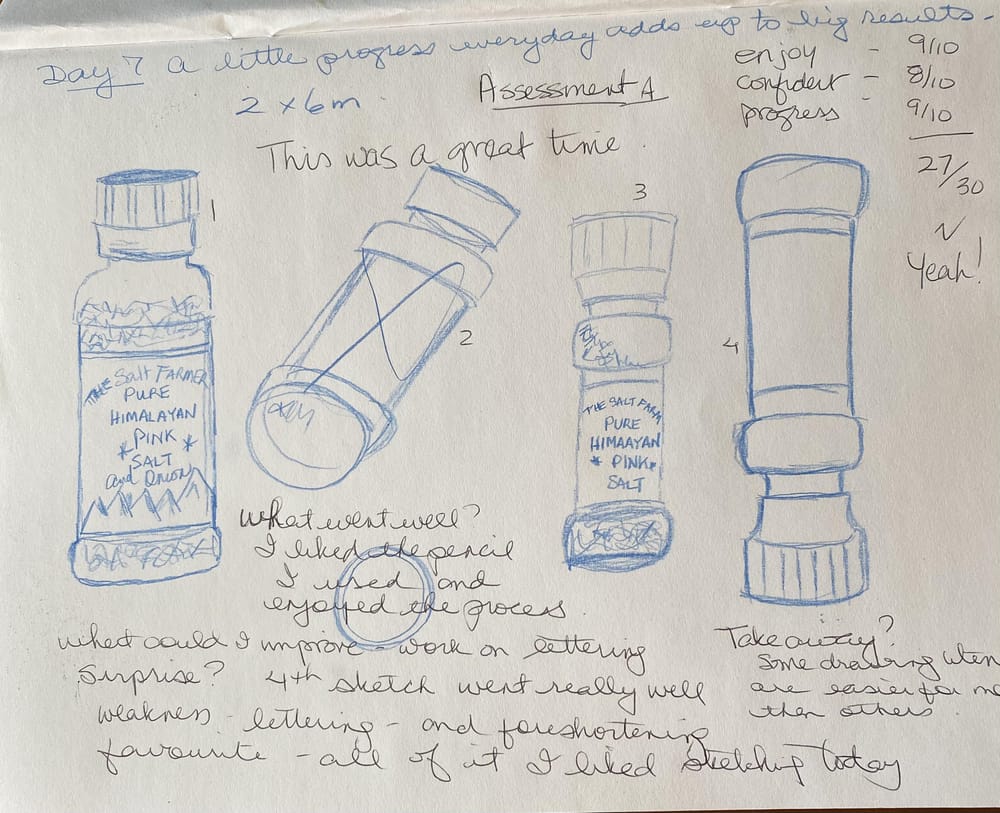 Day 7 a little progress everyday adds up to big results -
2 x 6 m
Assessment A
enjoy - 9/10
confident - 8/10
progress - 9/10
27/30
Yeah!
This was a great time.
1
THE Salt FARMER
PURE
HIMALAYAN
* PINK *
SALT
and Onion
2
3
THE SALT FARM
PURE
HIMAAYAN
* PINK *
SALT
4
What went well?
I liked the pencil
I used and
enjoyed the process.
What could I improve - work on lettering
Surprise? 4th sketch went really well
weakness - lettering - and foreshortening
favourite - all of it I liked sketching today
Take away?
Some drawing
are easier for me
then others.